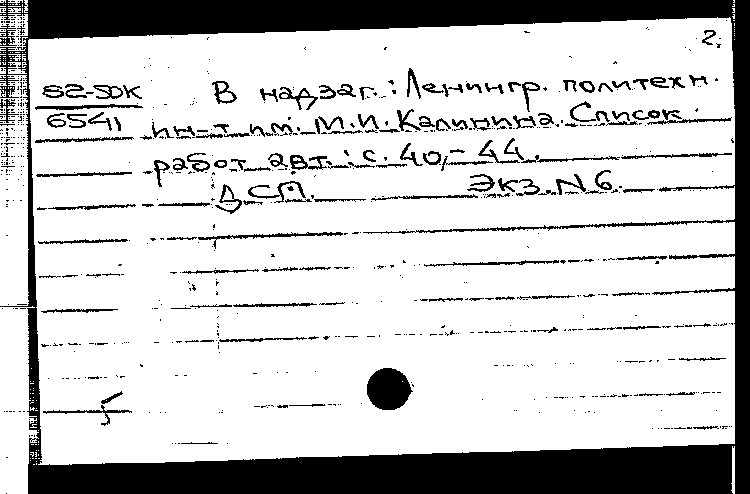 2.
82-5ДК В надзаг.: Ленингр. политехн.
6541 ин-т им. М.И. Калинина. Список
работ авт.: с. 40,-44.
ДСП. Экз. N 6.
5